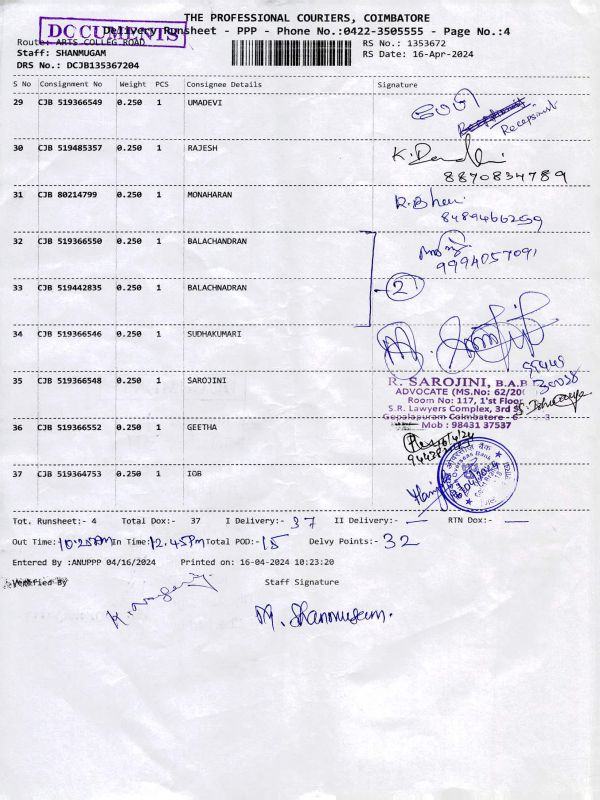 THE PROFESSIONAL COURIERS, COIMBATORE
DOCUMENTS
Delivery Runsheet - PPP - Phone No.:0422-3505555 - Page No.:4
Route: ARTS COLLEG ROAD
RS No.: 1353672
Staff: SHANMUGAM
RS Date: 16-Apr-2024
DRS No.: DCJB135367204
S No Consignment No Weight PCS Consignee Details Signature
29 CJB 519366549 0.250 1 UMADEVI
Receptionist
30 CJB 519485357 0.250 1 RAJESH
8870834789
31 CJB 80214799 0.250 1 MONAHARAN
8489466259
32 CJB 519366550 0.250 1 BALACHANDRAN
9994057091
33 CJB 519442835 0.250 1 BALACHNADRAN
2
34 CJB 519366546 0.250 1 SUDHAKUMARI
35 CJB 519366548 0.250 1 SAROJINI
R. SAROJINI, B.A.B
ADVOCATE (MS.No: 62/20
Room No: 117, 1'st Floor
S.R. Lawyers Complex, 3rd
Gopalapuram Coimbatore -
Mob : 98431 37537
36 CJB 519366552 0.250 1 GEETHA
37 CJB 519364753 0.250 1 IOB
Tot. Runsheet:- 4 Total Dox:- 37 I Delivery:- 37 II Delivery:- — RTN Dox:- —
Out Time: 10.25AM In Time: 12.45PM Total POD:- 15 Delvy Points:- 32
Entered By :ANUPPP 04/16/2024 Printed on: 16-04-2024 10:23:20
Verified By Staff Signature
M. Shanmugam.